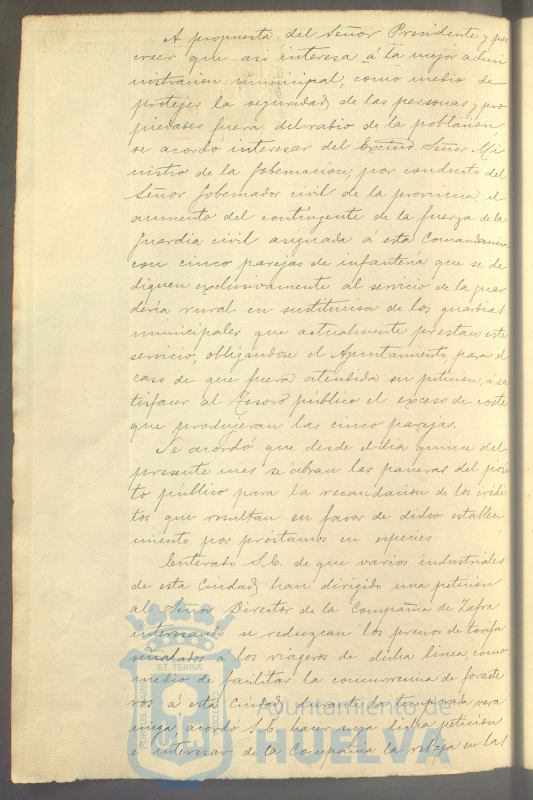 A propuesta del Señor Presidente y por
creer que asi interesa á la mejor admi
nistracion municipal, como medio de
protejer la seguridad de las personas y pro
piedades fuera del radio de la poblacion,
se acordó interesar del Excmo. Señor Mi
nistro de la Gobernacion, por conducto del
Señor Gobernador civil de la provincia, el
aumento del contingente de la fuerza de la
Guardia civil asignada á esta Comandancia
con cinco parejas de infanteria que se de
diquen exclusivamente al servicio de la guar
deria rural en sustitucion de los guardias
municipales que actualmente prestan este
servicio, obligándose el Ayuntamiento, para el
caso de que fuera atendida su peticion, á sa
tisfacer al Tesoro público el exceso de coste
que produjeran las cinco parejas.
Se acordó que desde el dia quince del
presente mes se abran las paneras del pósi
to público para la recaudacion de los crédi
tos que resultan en favor de dicho estableci
miento por préstamos en especies.
Enterado S.E. de que varios industriales
de esta Ciudad han dirigido una peticion
al Señor Director de la Compañia de Zafra
interesando se reduzcan los precios de tarifa
señalados á los viageros de dicha linea, como
medio de facilitar la concurrencia de foraste
ros á esta Ciudad durante la temporada vera
niega, acordó S.E. hacer suya dicha peticion
é interesar de la Compañia la rebaja en las
PORTUS MARIS
ET TERRÆ
CUSTODIA
Ayuntamiento de
HUELVA